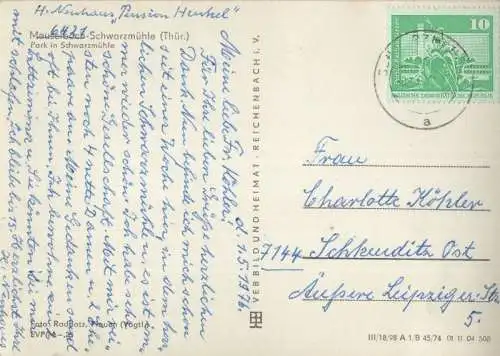 H. Neuhaus, "Pension Henkel"
6421
Meuselbach-Schwarzmühle (Thür.)
Park in Schwarzmühle
d. 1.5.1976
Meine liebe Fr. Köhler!
Für Ihre lieben Grüße herzlichen
Dank. Nun befinde ich mich schon
seit einer Woche hier in dem herr-
lichen Schwarzmühle u. es ist
mer wieder schön. Ich habe sehr
schön Gesellschaft. Mit mir
noch 4 nette Damen u. 1 Ehe-
paar an. Meine Gedanken sind
oft bei Ihnen. Ich bewohne ein
Sie könnten
mit schlafen. Ich bleibe bis 15. Herzlichst Ihre
H. Neuhaus
Foto: Radlotz, Plauen (Vogtl.)
VEB BILD UND HEIMAT · REICHENBACH i. V.
10
DEUTSCHE DEMOKRATISCHE REPUBLIK
a
Frau
Charlotte Köhler
7144 Schkeuditz Ost
Äußere Leipziger-Str
5.
III/18/98 A 1/B 45/74 01 11 04 500